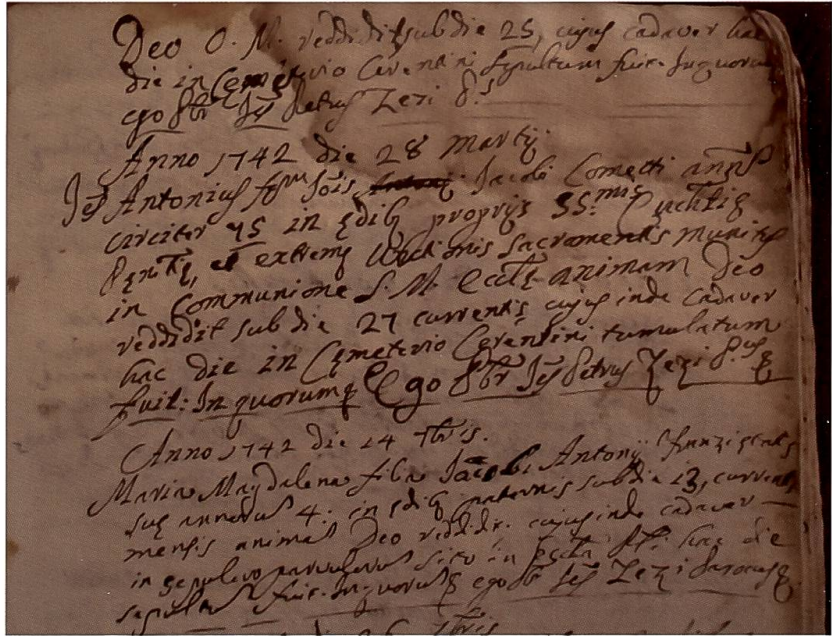 Deo O. M. reddidit sub die 25, cujus cadaver hac
die in Cemeterio Cerentini sepultum fuit. In quorum
ego Pbr Jos Petrus Zezi P.s
Anno 1742 die 28 Martij.
Jos Antonius f qm Jois Jacobi Cometti anns
circiter 75 in edib proprijs SS.mis Euchtie
Pentie, et extreme Unctionis sacramentis munitus
in Communione S. M. Eccle animam Deo
reddidit sub die 27 currentis cujus inde cadaver
hac die in Cemeterio Cerentini tumulatum
fuit. In quorumq Ego Pbr Jos Petrus Zezi P.us
Anno 1742 die 14 7bris.
Maria Magdalena filia Jacobi Antonij
sue annorum 4. in edib paternis sub die 13, currentis
mensis animam Deo reddidit. cujus inde cadaver
in sepulcro parvulorum sito in Eccla hac die
sepultum fuit. In quorumq ego Pbr Jos Zezi Parocus
7bris